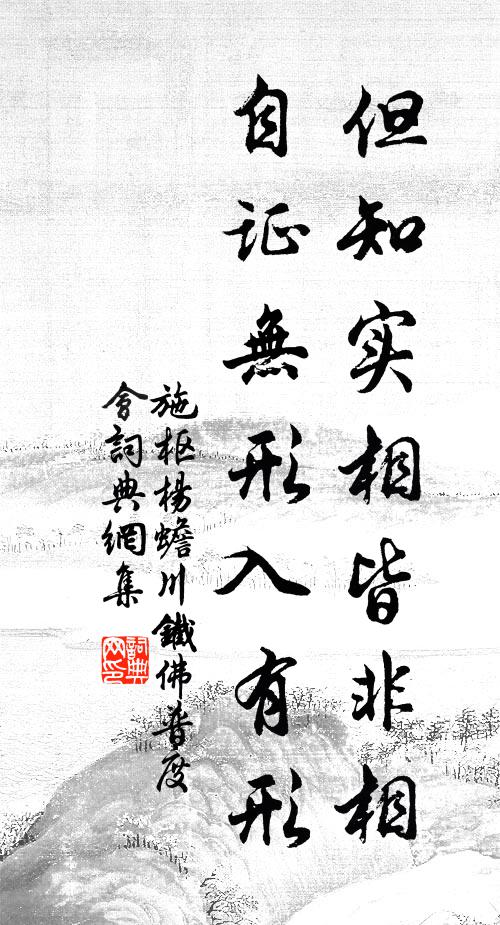 但知实相皆非相
自证無形入有形
施枢杨蟾川鐵佛普度
會詞典網集
詞典
网印